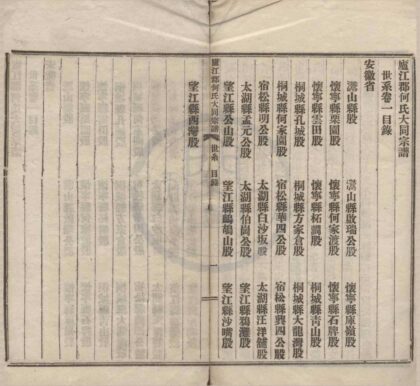 廬江郡何氏大同宗譜
世系卷一目錄
安徽省
潛山縣股 潛山縣啟瑞公股 懷寧縣庫嶺股
懷寧縣栗園股 懷寧縣何家渡股 懷寧縣石牌股
懷寧縣雲田股 懷寧縣柘澗股 桐城縣青山股
桐城縣孔城股 桐城縣方家倉股 桐城縣大龍灣股
桐城縣何家園股 宿松縣華四公股 宿松縣龔四公股
宿松縣明公股 太湖縣白沙坂股 太湖縣汪洋鋪股
太湖縣孟元公股 太湖縣伯崗公股 望江縣鴉灘股
望江縣公山股 望江縣鷓鴣山股 望江縣沙嘴股
廬江郡何氏大同宗譜 世系 目錄 一
望江縣西灣股